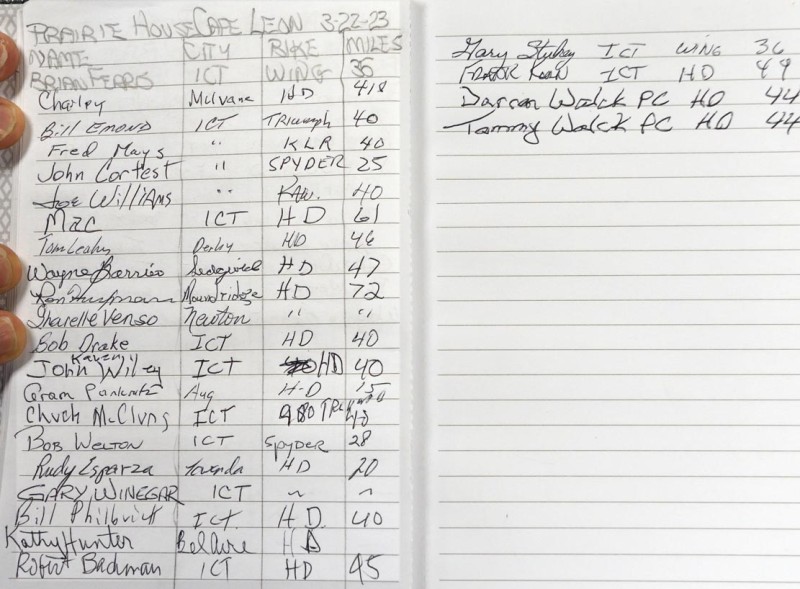 PRAIRIE HOUSE CAFE LEON 3-22-23
NAME CITY BIKE MILES
BRIAN FERRIS ICT WING 36
Charley Mulvane HD 41.8
Bill Emond ICT Triumph 40
Fred Mays " KLR 40
John Cortest " SPYDER 25
Joe Williams " KAW. 40
Mac ICT HD 61
Tom Leahy Derby HD 46
Wayne Barrios Sedgwick HD 47
Ron Moundridge HD 72
Sharelle Venso Newton " "
Bob Drake ICT HD 40
John Karen Wiley ICT HD 40
Gram Pankratz Aug H-D 15
Chuck McClung ICT
BOB WELTON ICT SPYDER 28
Rudy Esparza Towanda HD 20
GARY WINEGAR ICT ~ ~
Bill Philbrick ICT. H D. 40
Kathy Hunter Bel Aire H D
Robert Bachman ICT HD 45
Gary ICT WING 36
ICT HD 49
Darran Walck PC HD 44
Tammy Walck PC HD 44